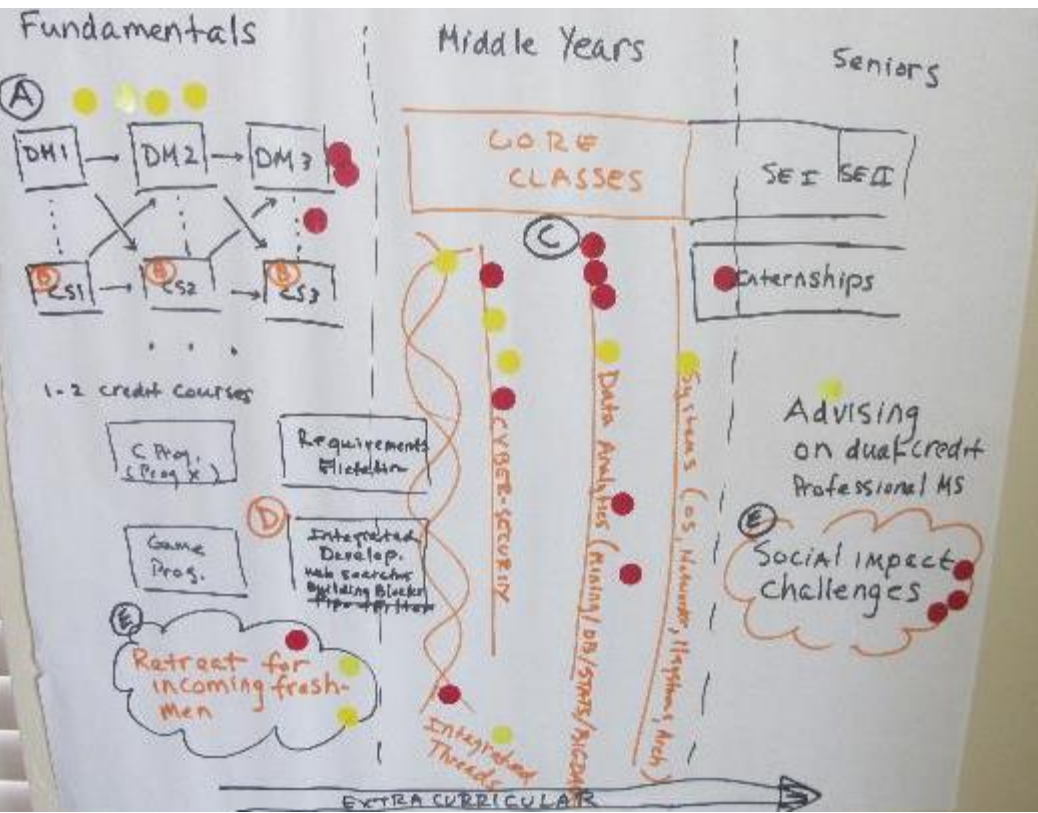 Fundamentals
Middle Years
Seniors
A
DM1
DM2
DM3
B
CS1
B
CS2
B
CS3
...
1-2 credit courses
C Prog.
(Prog X)
Requirements
Game
Prog.
D
Integrated
Develop.
Web searches
Building Blocks
E
Retreat for
incoming fresh-
men
CORE
CLASSES
C
CYBER-SECURITY
Data Analytics (Mining/DB/STATS/BIGDATA
Systems (OS, Network, , Arch)
Integrated
Threads
SE I
SE II
Internships
Advising
on dual-credit
Professional MS
E
Social impact
challenges
EXTRA CURRICULAR